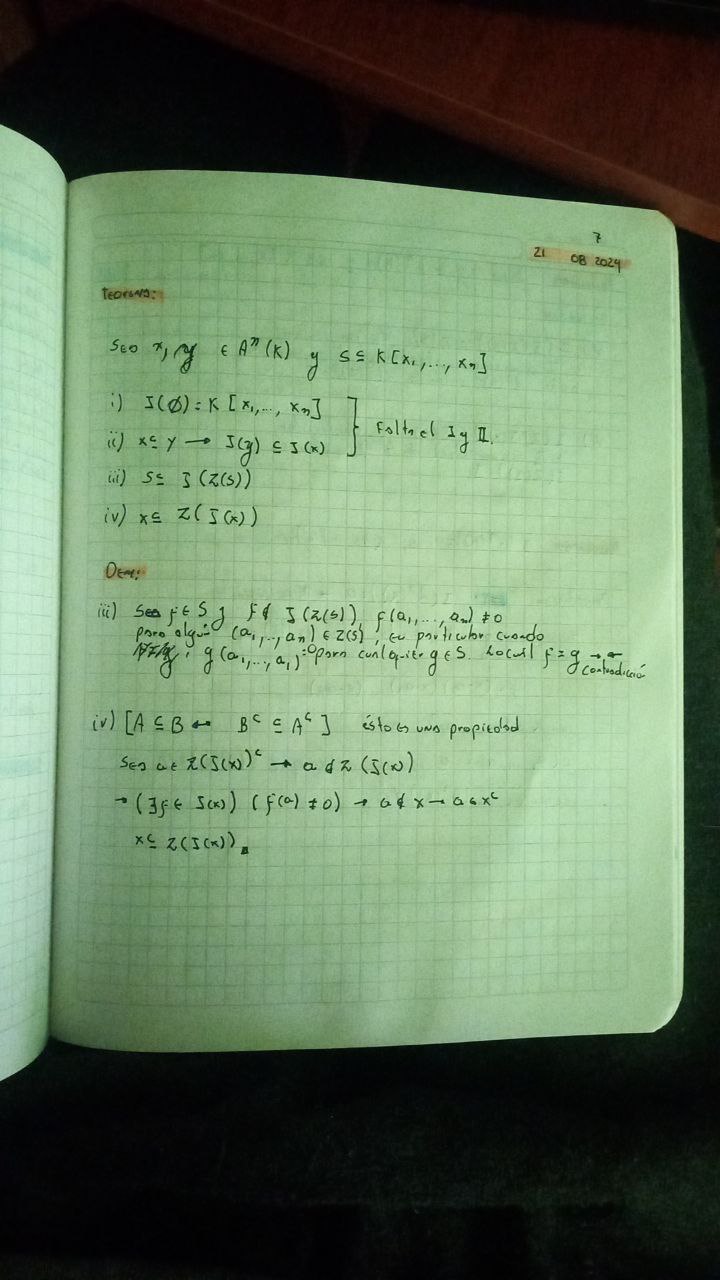 7
21 08 2024
Teorema:
Sea x, y ∈ Aⁿ(K) y S ⊆ K[x₁,..., xₙ]
i) I(∅) = K[x₁,..., xₙ]
ii) x ⊆ y → I(y) ⊆ I(x)
Falta el I y II.
iii) S ⊆ I(Z(S))
iv) x ⊆ Z(I(x))
Dem:
iii) Sea f ∈ S y f ∉ I(Z(S)), f(a₁,..., aₙ) ≠ 0
para algún (a₁,..., aₙ) ∈ Z(S), en particular cuando
g(a₁,..., a₁) = 0 para cualquier g ∈ S. Lo cual f = g →←
contradicción
iv) [A ⊆ B ↔ Bᶜ ⊆ Aᶜ] ésto es una propiedad
Sea a ∈ Z(I(x))ᶜ → a ∉ Z(I(x))
→ (∃f ∈ I(x)) (f(a) ≠ 0) → a ∉ x → a ∈ xᶜ
x ⊆ Z(I(x)) ∎